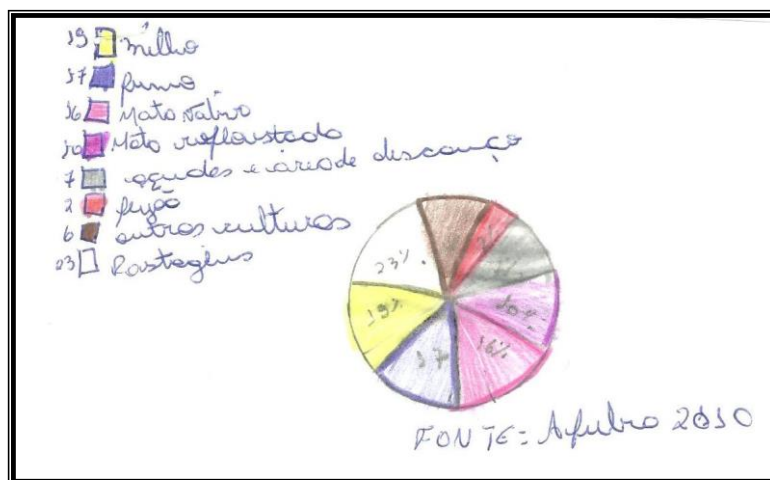 19 milho
17 fumo
16 Mato nativo
10 Mato reflorstado
7 açudes e área de descanço
2 feijão
6 outras culturas
23 Pastagens
23%.
2%
7%
19%
10%
17
16%
FONTE = Afubra 2010